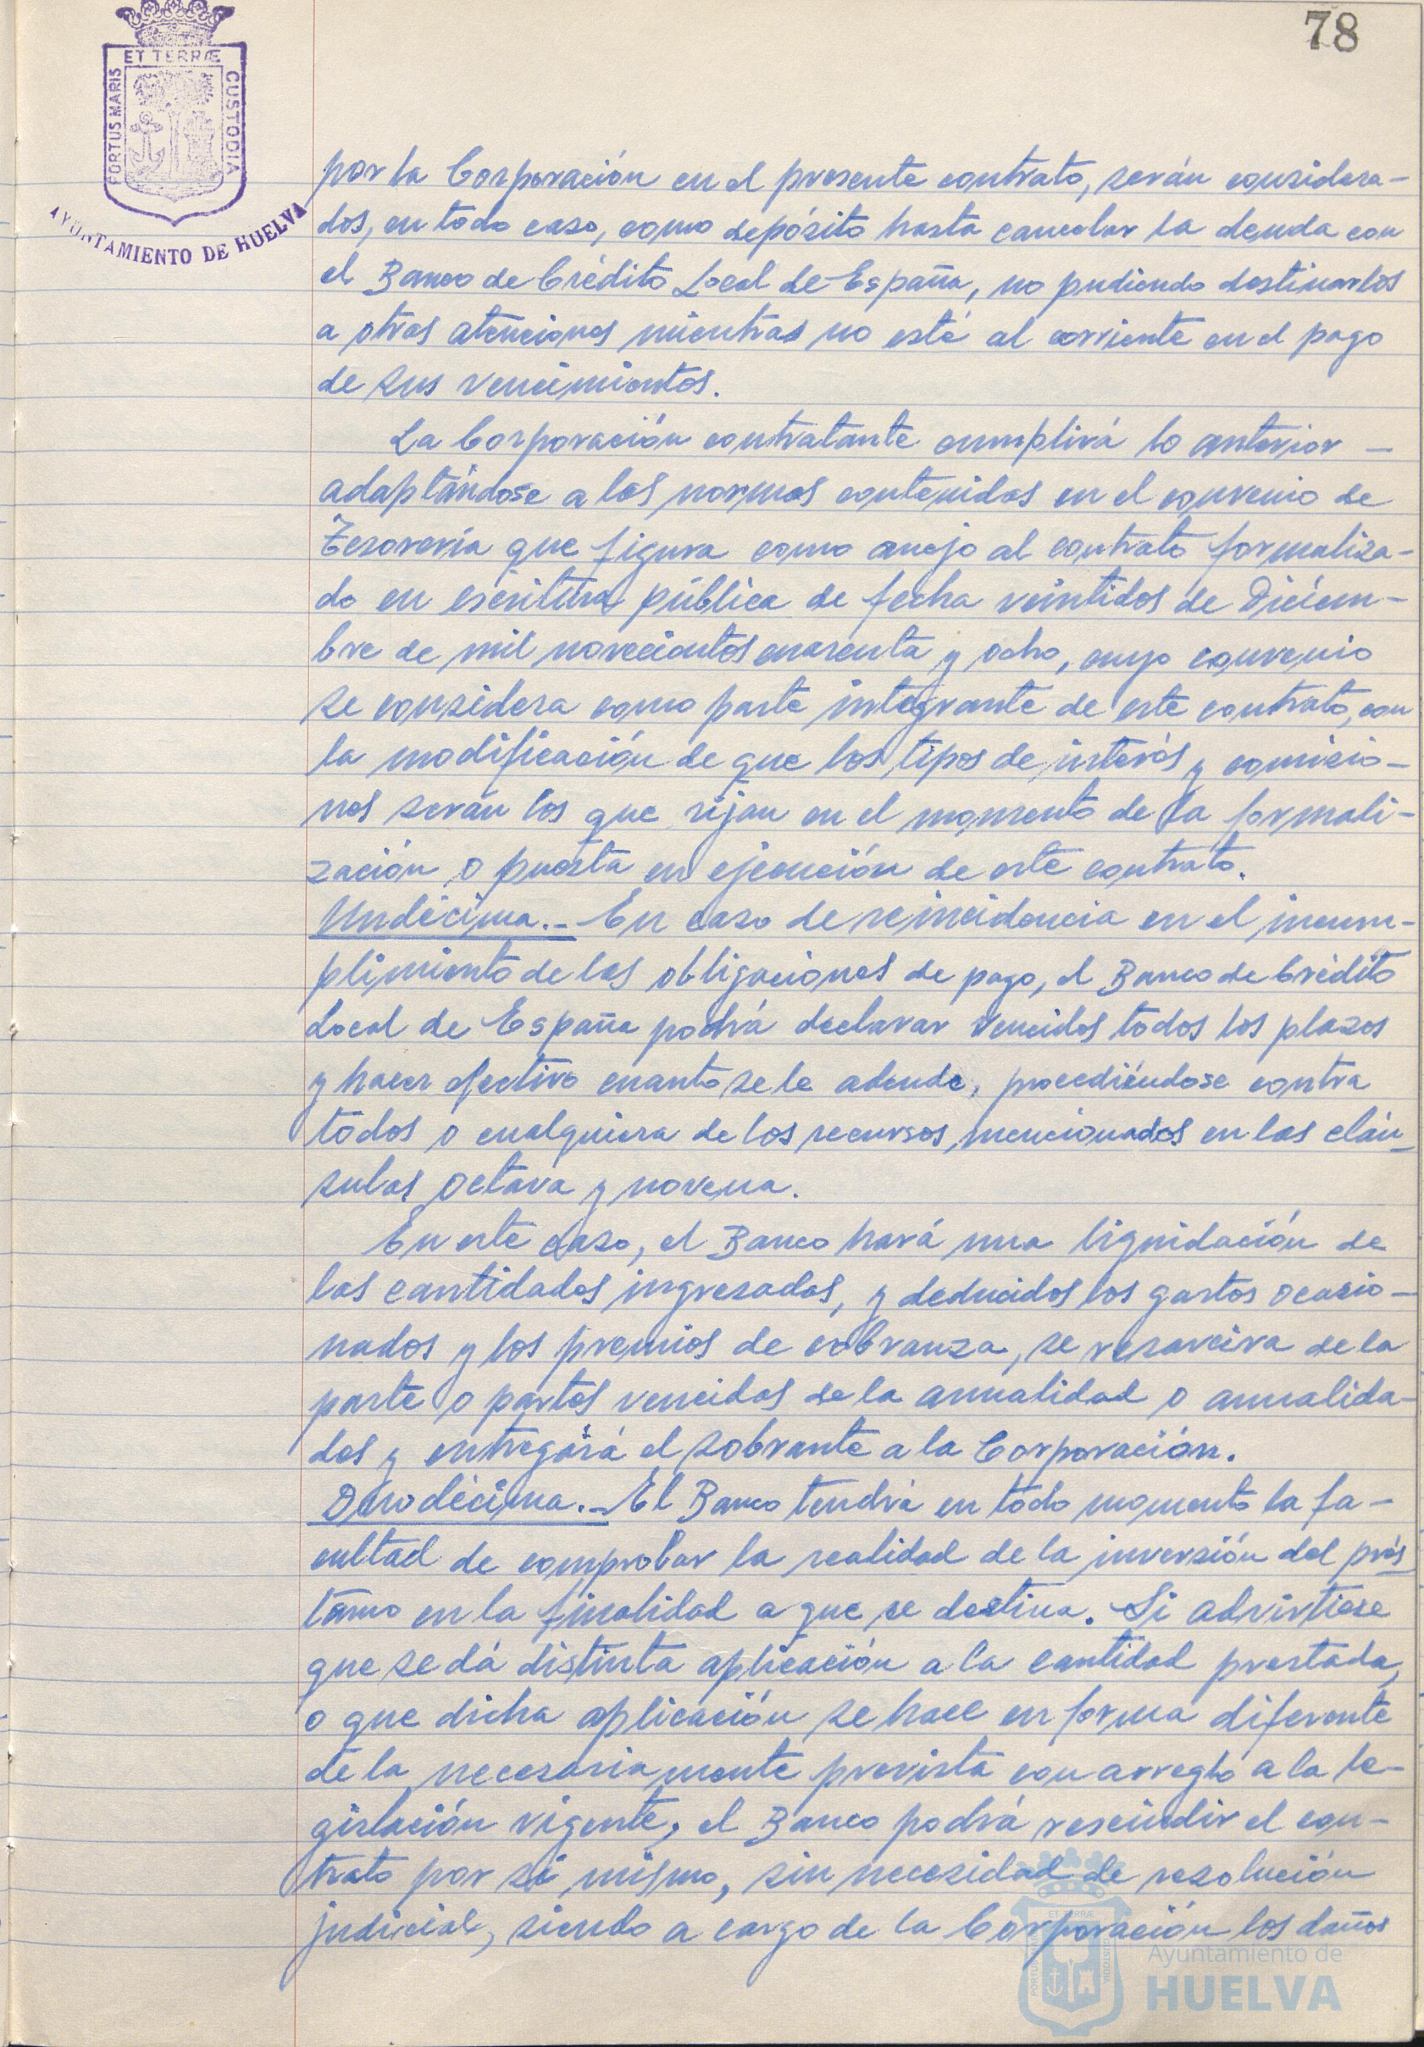 78
ET TERRÆ
PORTUS MARIS
CUSTODIA
AYUNTAMIENTO DE HUELVA
por la Corporación en el presente contrato, serán considera-
dos, en todo caso, como depósito hasta cancelar la deuda con
el Banco de Crédito Local de España, no pudiendo destinarlos
a otras atenciones mientras no esté al corriente en el pago
de sus vencimientos.
La Corporación contratante cumplirá lo anterior -
adaptándose a las normas contenidas en el convenio de
Tesorería que figura como anejo al contrato formaliza-
do en escritura pública de fecha veintidos de Diciem-
bre de mil novecientos cuarenta y ocho, cuyo convenio
se considera como parte integrante de este contrato, con
la modificación de que los tipos de interés y comisio-
nes serán los que rijan en el momento de la formali-
zación o puesta en ejecución de este contrato.
Undécima.- En caso de reincidencia en el incum-
plimiento de las obligaciones de pago, el Banco de Crédito
Local de España podrá declarar vencidos todos los plazos
y hacer efectivo cuanto se le adeude, procediéndose contra
todos o cualquiera de los recursos mencionados en las cláu-
sulas octava y novena.
En este caso, el Banco hará una liquidación de
las cantidades ingresadas, y deducidos los gastos ocasio-
nados y los premios de cobranza, se resarcira de la
parte o partes vencidas de la anualidad o anualida-
des y entregará el sobrante a la Corporación.
Duodécima.- El Banco tendrá en todo momento la fa-
cultad de comprobar la realidad de la inversión del prés
tamo en la finalidad a que se destina. Si advirtiese
que se dá distinta aplicación a la cantidad prestada,
o que dicha aplicación se hace en forma diferente
de la necesariamente prevista con arreglo a la le-
gislación vigente, el Banco podrá rescindir el con-
trato por sí mismo, sin necesidad de resolución
judicial, siendo a cargo de la Corporación los daños
Ayuntamiento de
HUELVA